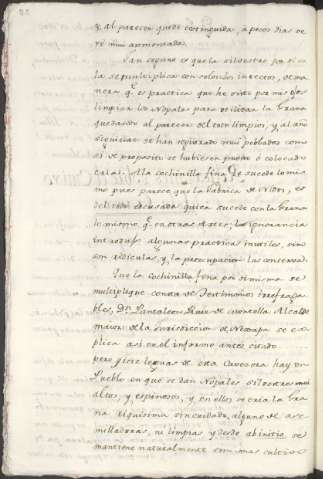 y al parecer quedo extinguida, a pocos dias se
ve mui aumentada.
Tan comun es que la silvestre por si so
la se multiplica con solo los insectos, de ma
nera q. es practica que he visto por mis ojos
limpiar los Nopales para destruir la Grana
quedando al parecer del todo limpios, y al año
siguiente se han registrado mui poblados como
si de proposito se hubieran puesto ó colocado
en la Cochinilla fina se sucede lo mis
mo pues parece que la fabrica de nidos, es
del todo escusada quisa sucede con la Grana
lo mismo q. en otras cosas; la ignorancia
introdujo algunas practicas inutiles, sino
son ridiculas, y la preocupacion las conserva.
Que la Cochinilla fina por si misma se
multiplique consta de Testimonios irrefraga
bles, Dn. Pantaleon Ruiz de Montoya Alcalde
maior de la Jurisdiccion de Nexapa se ex
plica asi en el informe antes citado
pero a leguas de esta Cavecera hay un
Pueblo en que se dan Nopales silvestres mui
altos, y espinosos, y en ellos se cria la Gra
na finisima sin cuidado alguno de ase
milladuras, ni limpias y desde abinitio se
mantiene naturalmente con mas cultivo